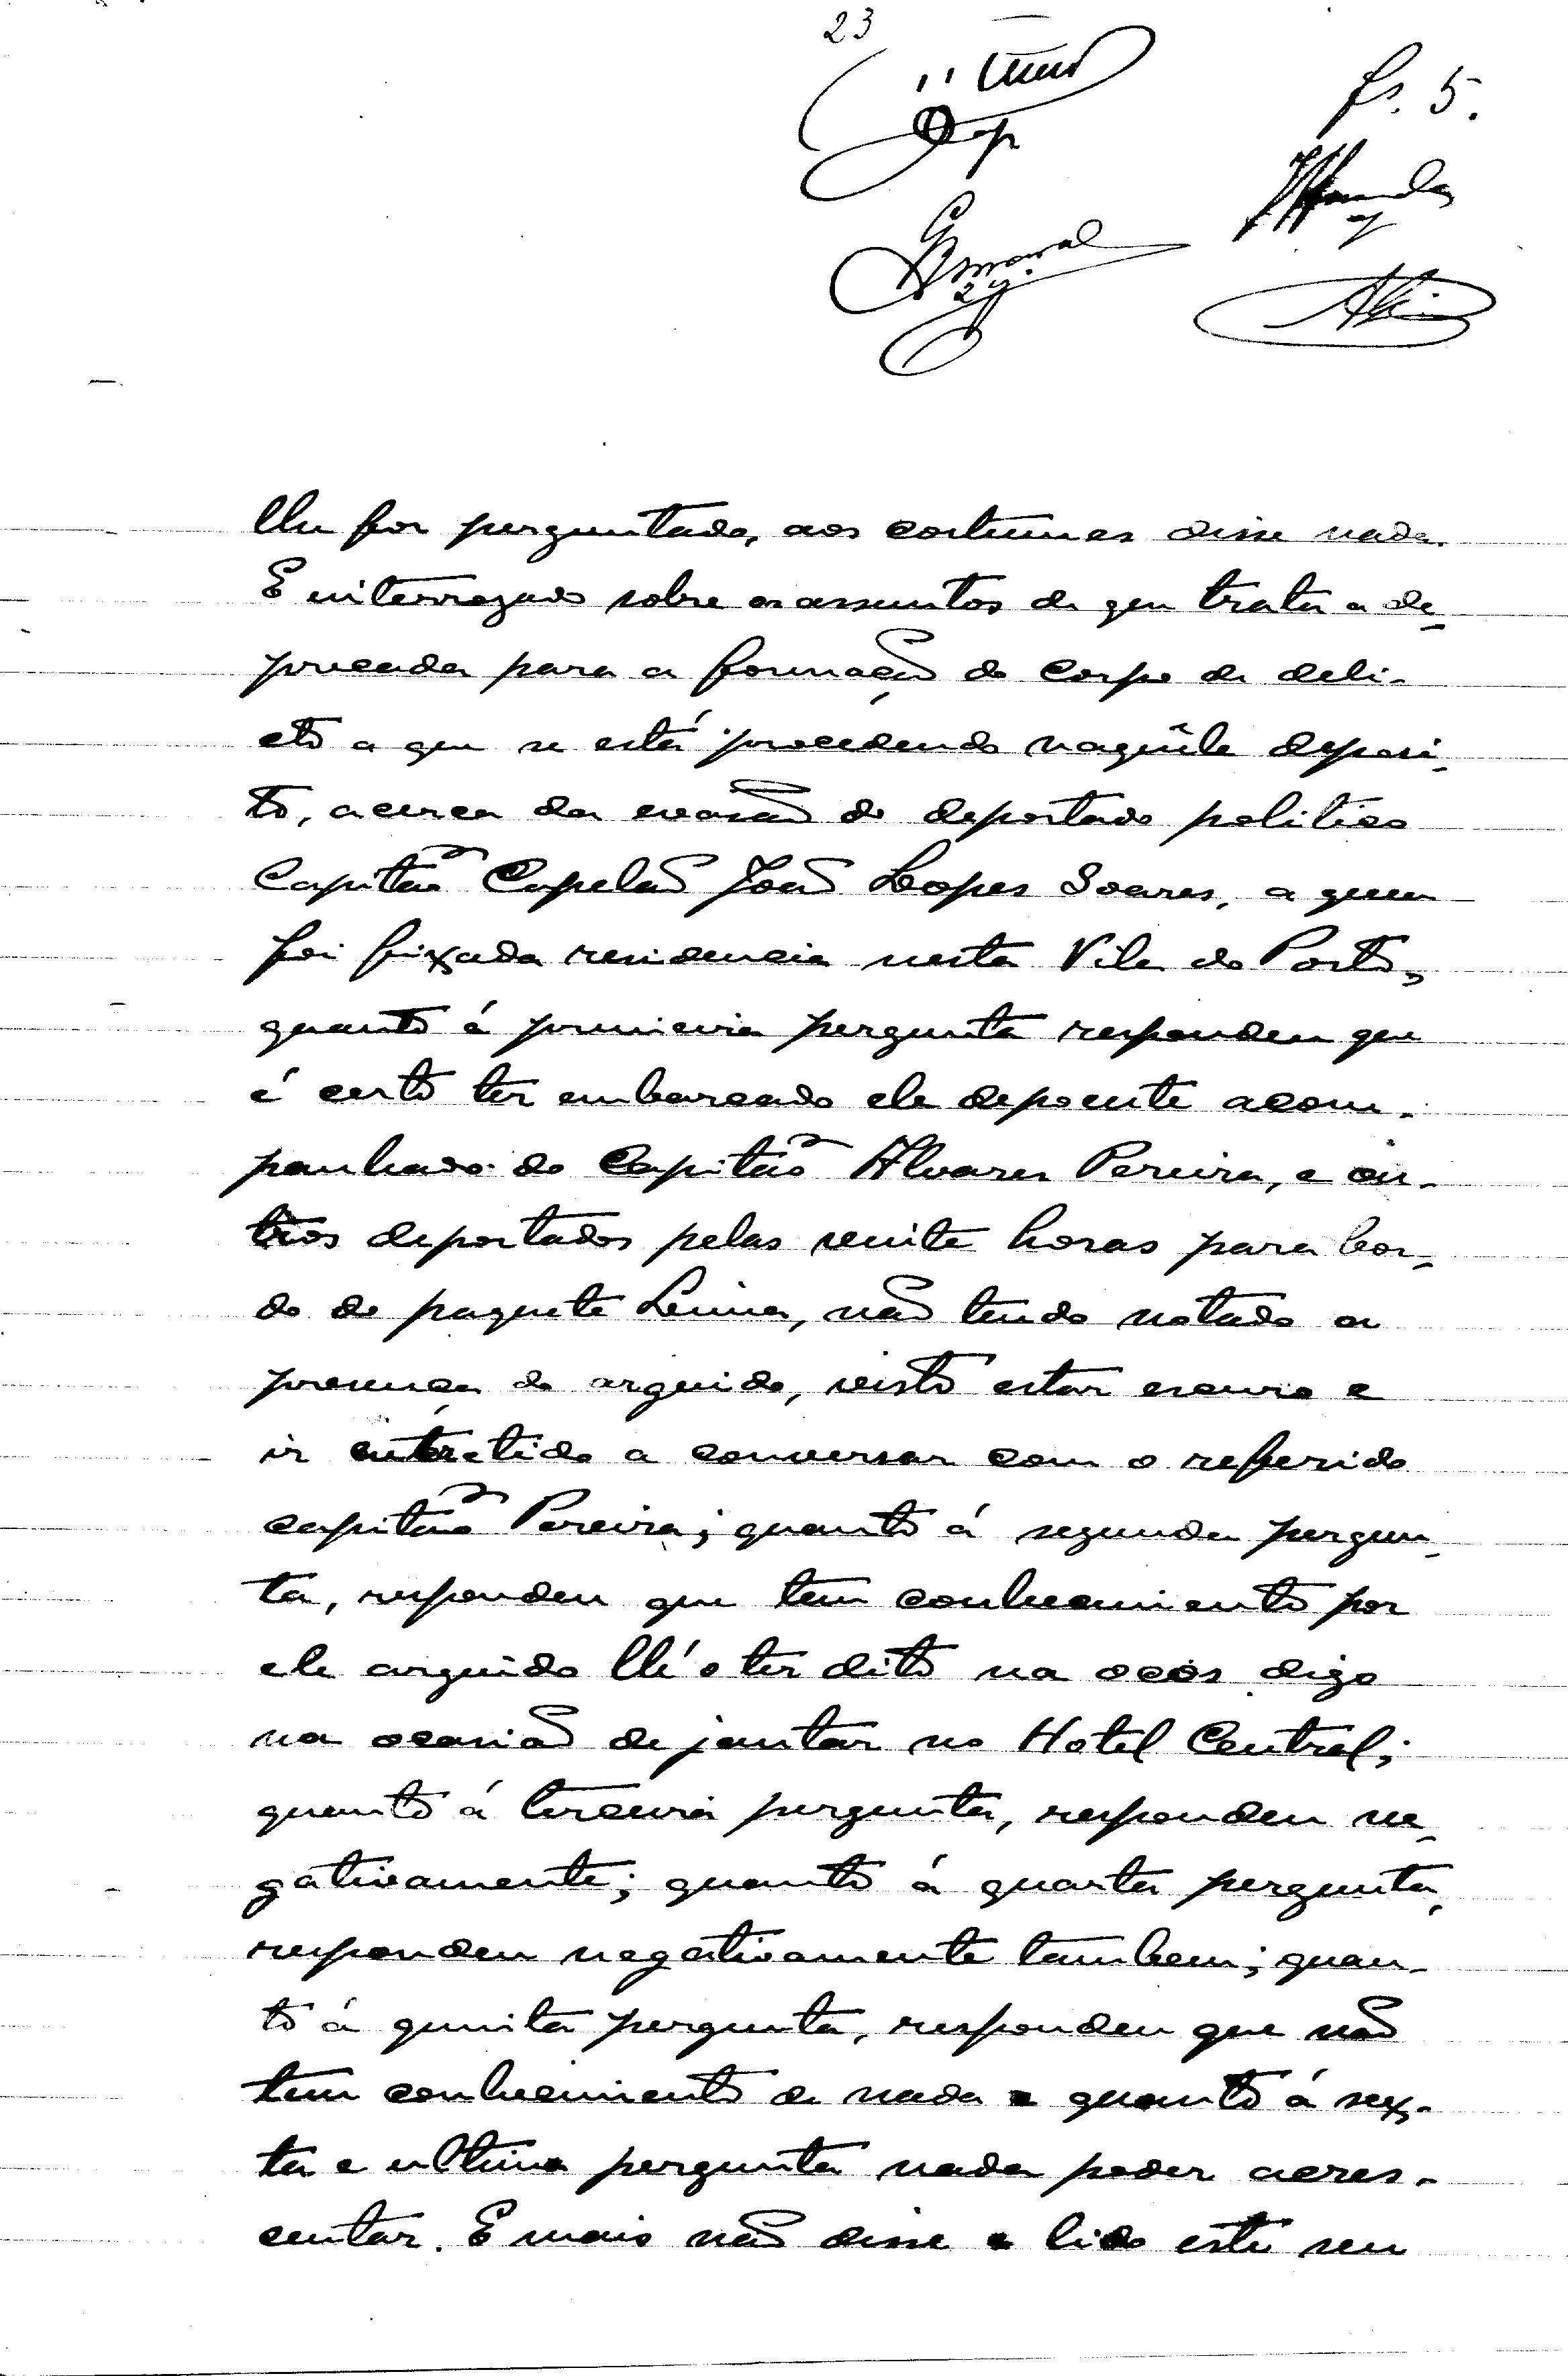 23
fs. 5.
Amaral
lhe for perguntado, aos costumes disse nada.
E interrogado sobre os assuntos de que trata a de-
precada para a formação do corpo de deli-
cto a que se está procedendo naquêle deposi-
to, acerca da evasão do deportado politico
Capitão Capelão João Lopes Soares, a quem
foi fixada residencia nesta Vila do Porto,
quanto á primeira pergunta respondeu que
é certo ter embarcado ele depoente acom-
panhado do Capitão Alvares Pereira, e ou-
tros deportados pelas vinte horas para bor-
do do paquete Lima, não tendo notado a
presença do arguido, visto estar escuro e
ir entretido a conversar com o referido
capitão Pereira; quanto á segunda pergun-
ta, respondeu que tem conhecimento por
ele arguido lh'o ter dito na ocos digo
na ocasião de jantar no Hotel Central;
quanto á terceira pergunta, respondeu ne-
gativamente; quanto á quarta pergunta,
respondeu negativamente tambem; quan-
to á quinta pergunta, respondeu que não
tem conhecimento de nada e quanto á sex-
ta e ultima pergunta nada poder acres-
centar. E mais não disse e lido este seu